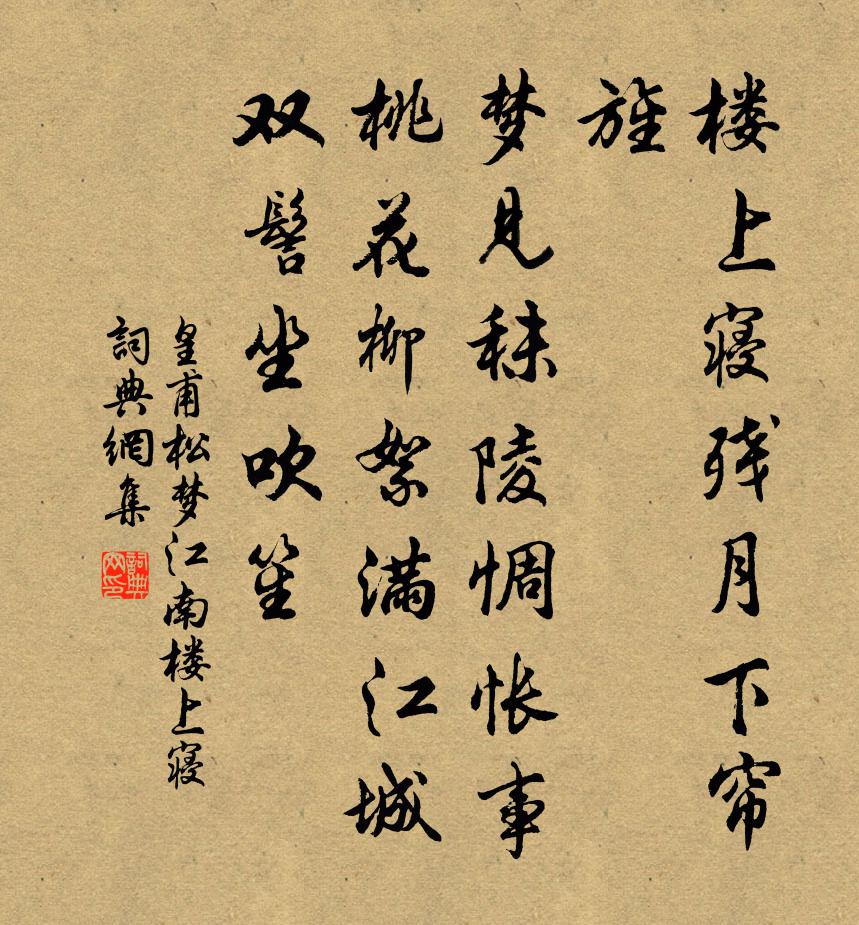 楼上寝残月下帘
旌
梦见秣陵惆怅事
桃花柳絮满江城
双髻坐吹笙
皇甫松梦江南楼上寝
詞典網集
詞典网印